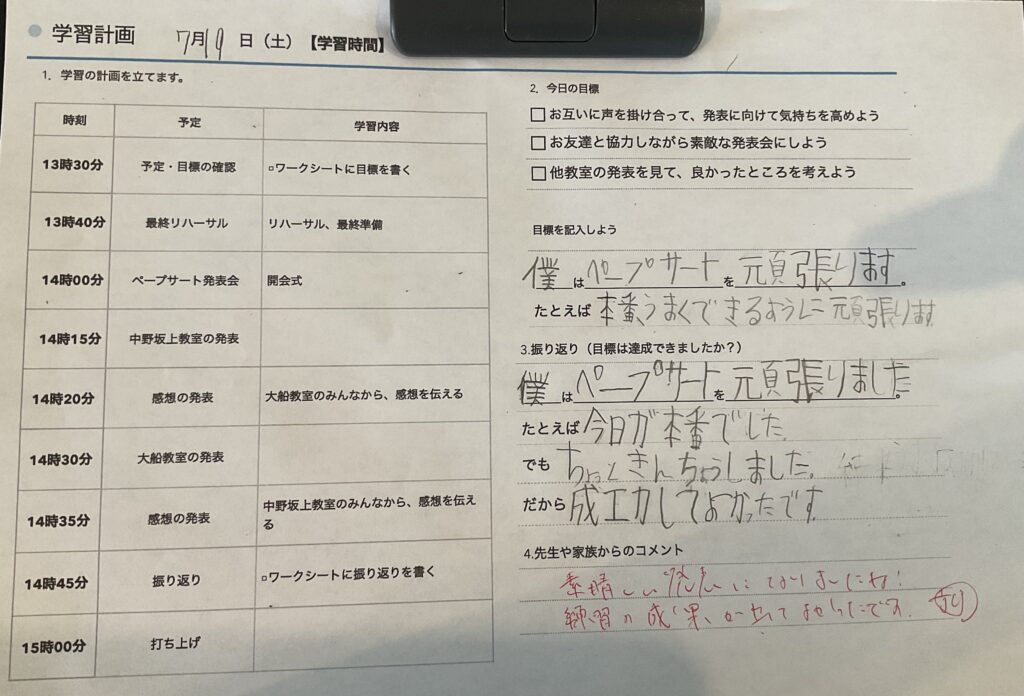 学習計画 7月19日（土）【学習時間】
1．学習の計画を立てます。
時刻 予定 学習内容
13時30分 予定・目標の確認 ▫ワークシートに目標を書く
13時40分 最終リハーサル リハーサル、最終準備
14時00分 ペープサート発表会 開会式
14時15分 中野坂上教室の発表
14時20分 感想の発表 大船教室のみんなから、感想を伝える
14時30分 大船教室の発表
14時35分 感想の発表 中野坂上教室のみんなから、感想を伝え
る
14時45分 振り返り ▫ワークシートに振り返りを書く
15時00分 打ち上げ
2．今日の目標
□お互いに声を掛け合って、発表に向けて気持ちを高めよう
□お友達と協力しながら素敵な発表会にしよう
□他教室の発表を見て、良かったところを考えよう
目標を記入しよう
僕はペープサートを頑張ります。
たとえば 本番、うまくできるように頑張ります
3.振り返り（目標は達成できましたか？）
僕はペープサートを頑張りました。
たとえば 今日が本番でした。
でも ちょっときんちょうしました。
だから 成功してよかったです
4.先生や家族からのコメント
素晴しい発表になりましたね！
練習の成果が出てよかったです。